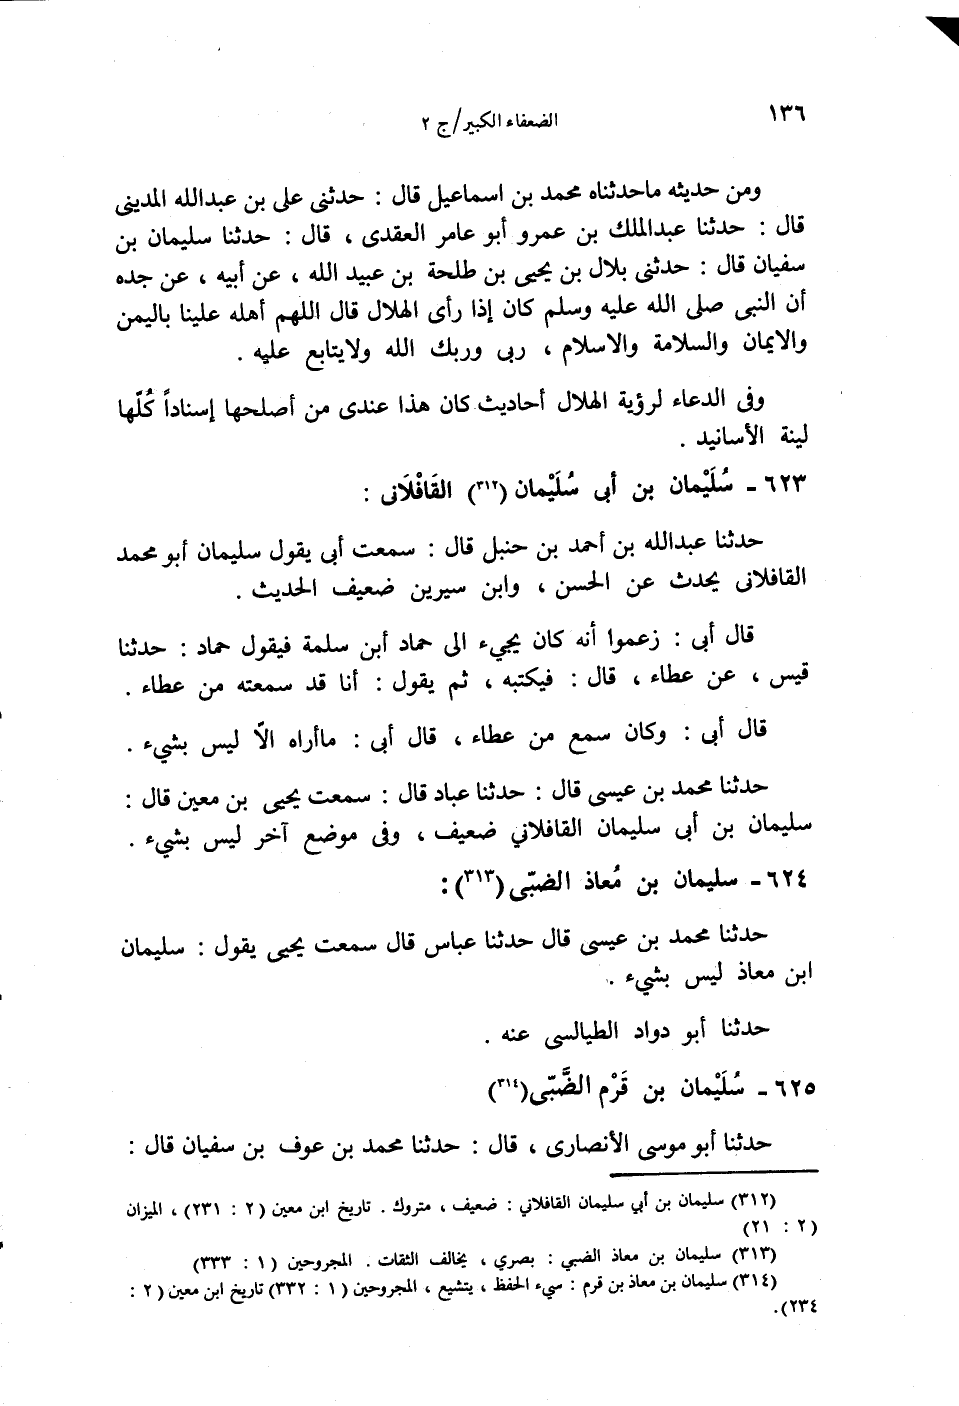 ١٣٦
الضعفاء الكبير/ج ٢
ومن حديثه ماحدثناه محمد بن اسماعيل قال : حدثنى على بن عبدالله المدينى
قال : حدثنا عبدالملك بن عمرو أبو عامر العقدى ، قال : حدثنا سليمان بن
سفيان قال : حدثنى بلال بن يحيى بن طلحة بن عبيد الله ، عن أبيه ، عن جده
أن النبى صلى الله عليه وسلم كان إذا رأى الهلال قال اللهم أهله علينا باليمن
والايمان والسلامة والاسلام ، ربى وربك الله ولايتابع عليه .
وفى الدعاء لرؤية الهلال أحاديث كان هذا عندى من أصلحها إسناداً كُلّها
لينة الأسانيد .
٦٢٣ - سُلَيْمان بن أبى سُلَيْمان (٣١٢) القَافْلَانى :
حدثنا عبدالله بن أحمد بن حنبل قال : سمعت أبى يقول سليمان أبو محمد
القافلانى يحدث عن الحسن ، وابن سيرين ضعيف الحديث .
قال أبى : زعموا أنه كان يجيء الى حماد أبن سلمة فيقول حماد : حدثنا
قيس ، عن عطاء ، قال : فيكتبه ، ثم يقول : أنا قد سمعته من عطاء .
قال أبى : وكان سمع من عطاء ، قال أبى : ماأراه الاّ ليس بشيء .
حدثنا محمد بن عيسى قال : حدثنا عباد قال : سمعت يحيى بن معين قال :
سليمان بن أبى سليمان القافلاني ضعيف ، وفى موضع آخر ليس بشيء .
٦٢٤ - سليمان بن مُعاذ الضبّى (٣١٣) :
حدثنا محمد بن عيسى قال حدثنا عباس قال سمعت يحيى يقول : سليمان
ابن معاذ ليس بشيء .
حدثنا أبو دواد الطيالسى عنه .
٦٢٥ - سُلَيْمان بن قَرْم الضَّبّى (٣١٤)
حدثنا أبو موسى الأنصارى ، قال : حدثنا محمد بن عوف بن سفيان قال :
(٣١٢) سليمان بن أبي سليمان القافلاني : ضعيف ، متروك . تاريخ ابن معين (٢ : ٢٣١) ، الميزان
(٢ : ٢١)
(٣١٣) سليمان بن معاذ الضبي : بصري ، يخالف الثقات . المجروحين (١ : ٣٣٣)
(٣١٤) سليمان بن معاذ بن قرم : سيء الحفظ ، يتشيع ، المجروحين (١ : ٣٣٢) تاريخ ابن معين (٢ :
٢٣٤).